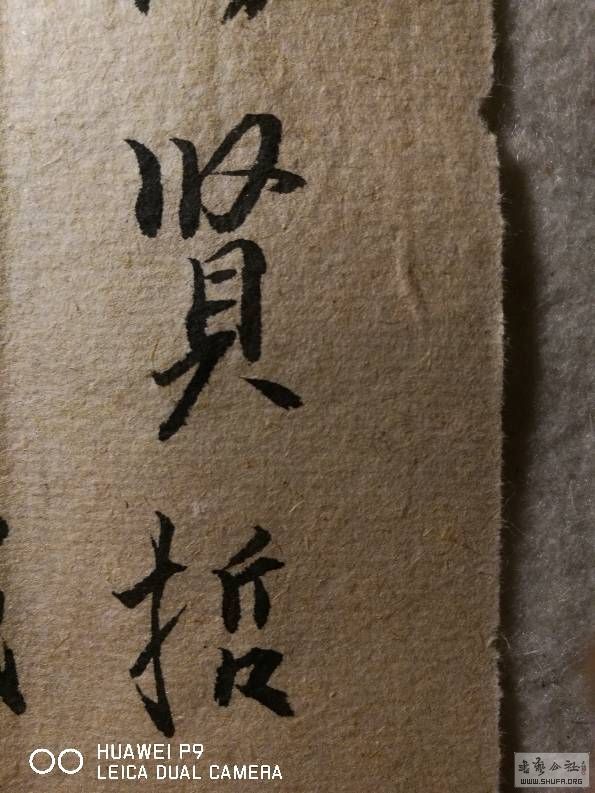 賢
哲
HUAWEI P9
LEICA DUAL CAMERA
书艺公社
WWW.SHUFA.ORG